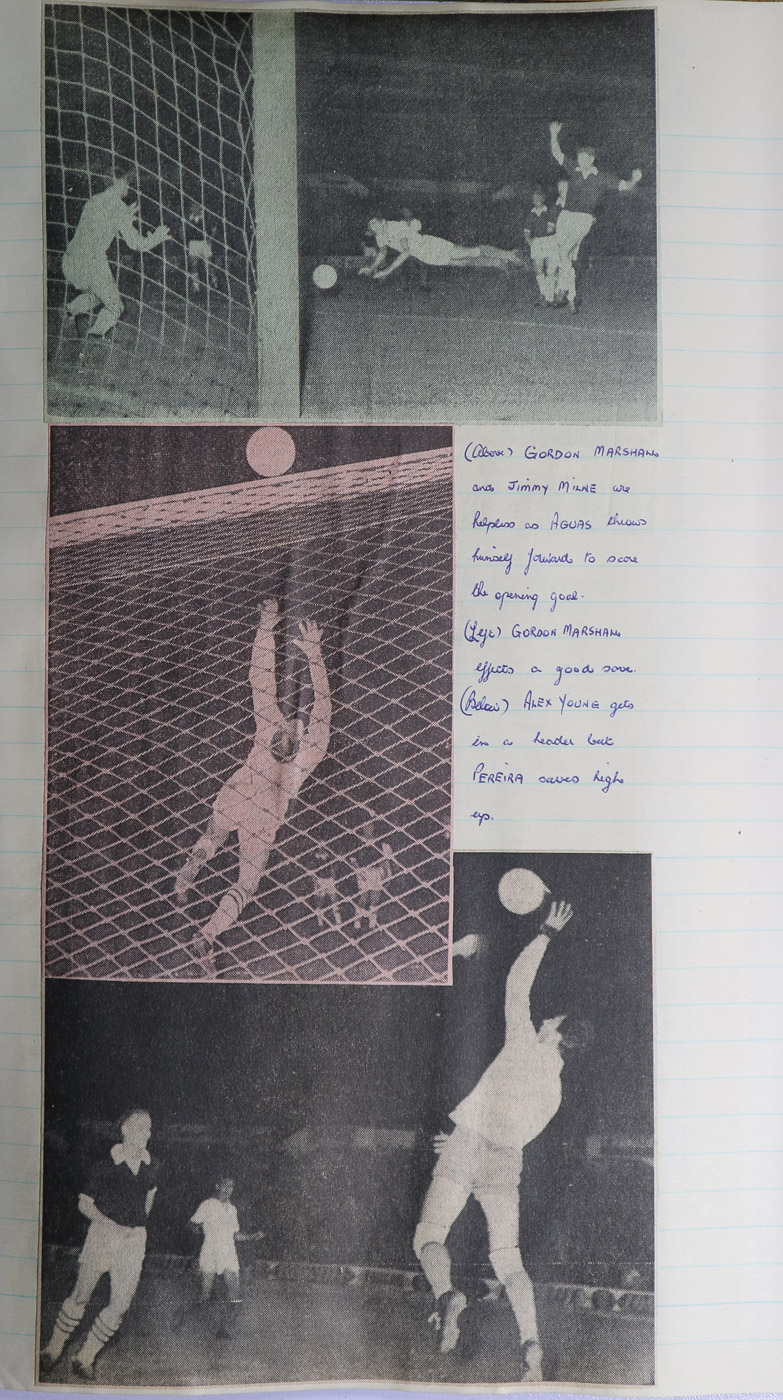 (Above) GORDON MARSHALL
and JIMMY MILNE are
helpless as AGUAS throws
himself forward to score
the opening goal.
(Left) GORDON MARSHALL
effects a good save.
(Below) ALEX YOUNG gets
in a header but
PEREIRA saves high
up.